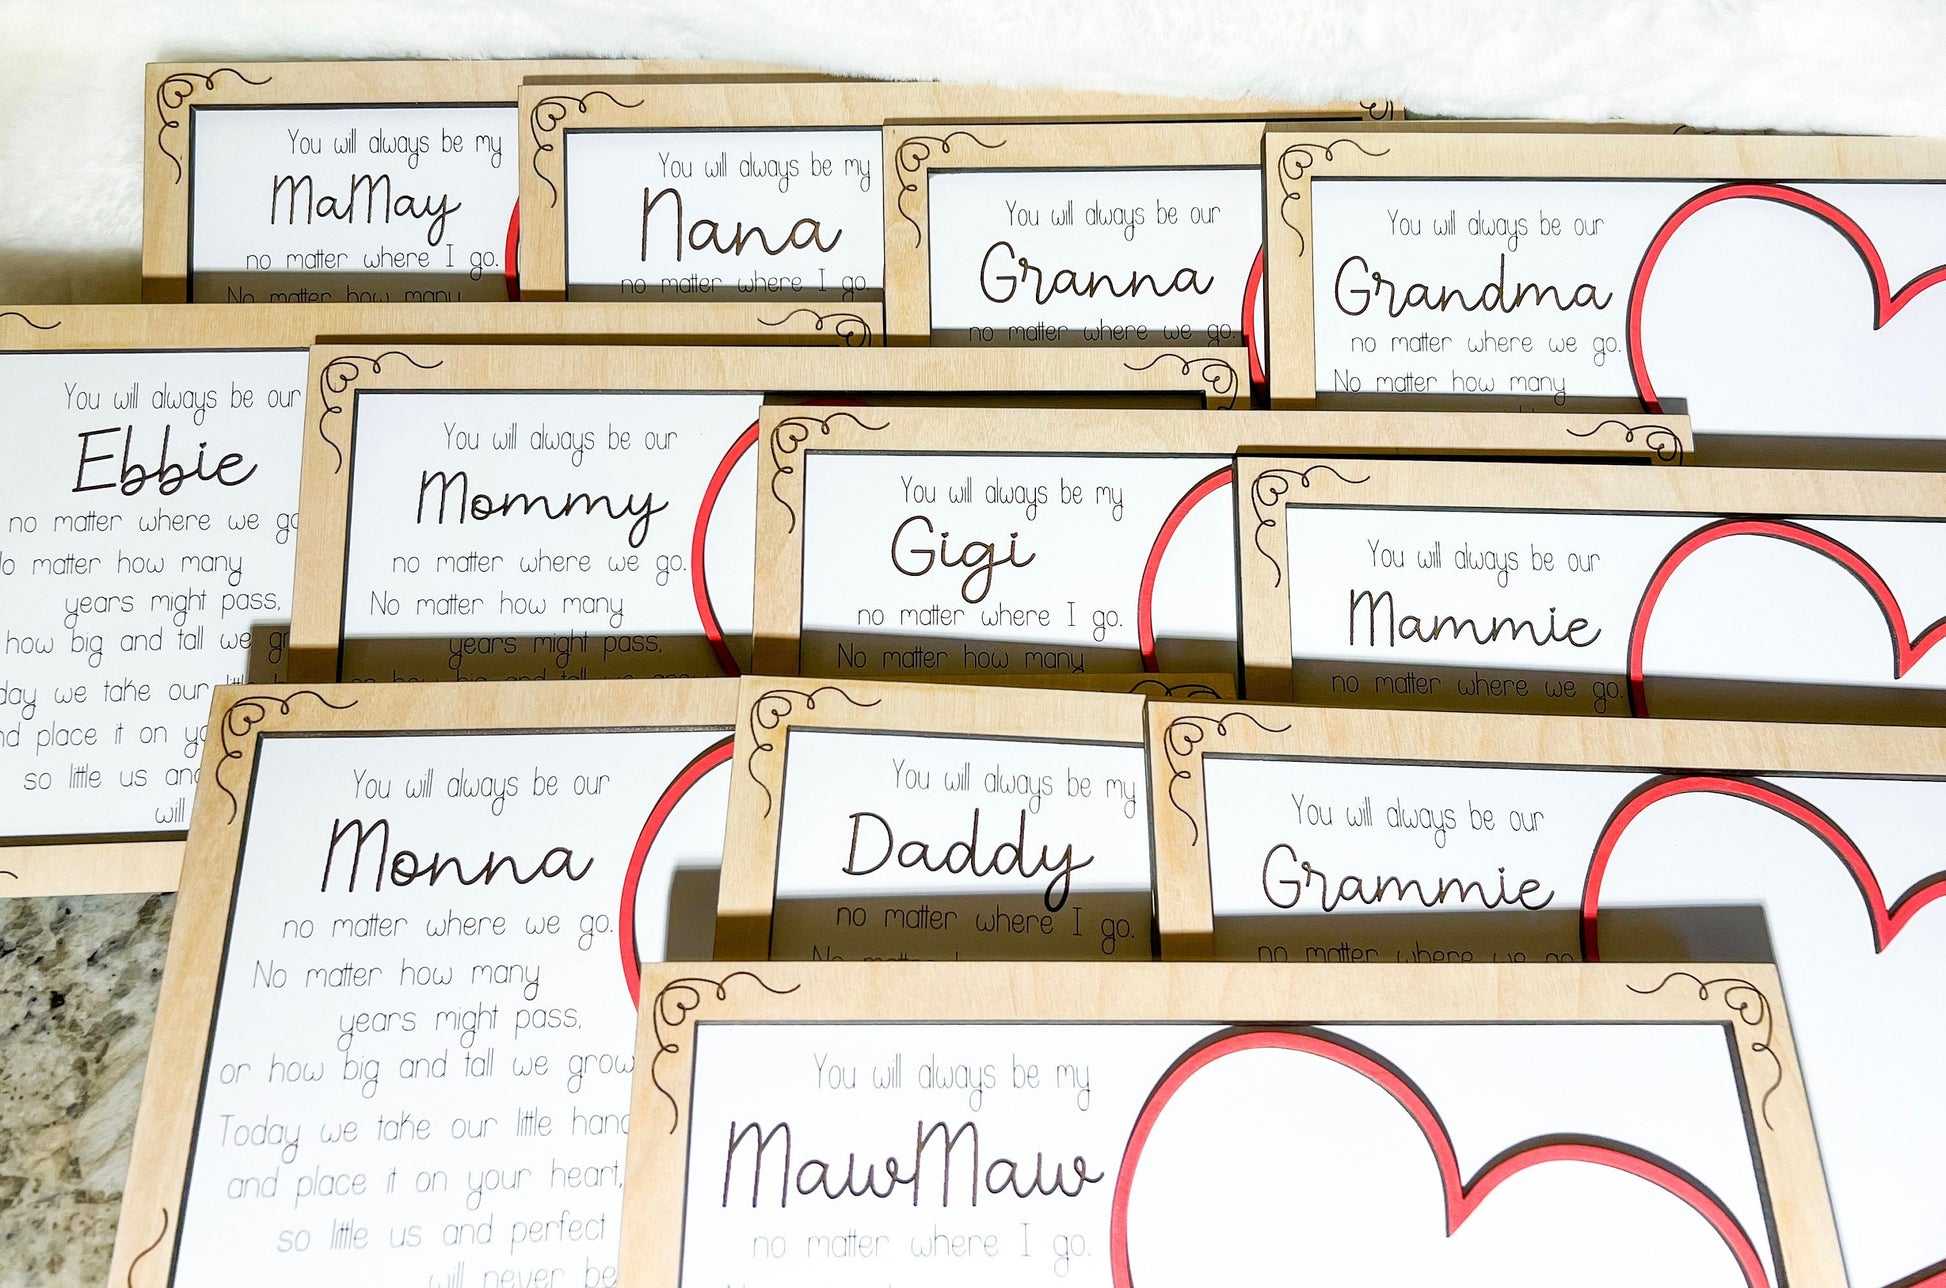 You will always be my
MaMay
no matter where I go.
No matter how many
You will always be my
Nana
no matter where I go.
You will always be our
Granna
no matter where we go.
You will always be our
Grandma
no matter where we go.
No matter how many
You will always be our
Ebbie
no matter where we go
matter how many
years might pass,
how big and tall we
we take our
place it on
so little us and
will
You will always be our
Mommy
no matter where we go.
No matter how many
years might pass,
You will always be my
Gigi
no matter where I go.
No matter how many
You will always be our
Mammie
no matter where we go.
You will always be our
Monna
no matter where we go.
No matter how many
years might pass,
or how big and tall we grow
Today we take our little hand
and place it on your heart,
so little us and perfect
will never be
You will always be my
Daddy
no matter where I go.
You will always be our
Grammie
no matter where we go
You will always be my
MawMaw
no matter where I go.